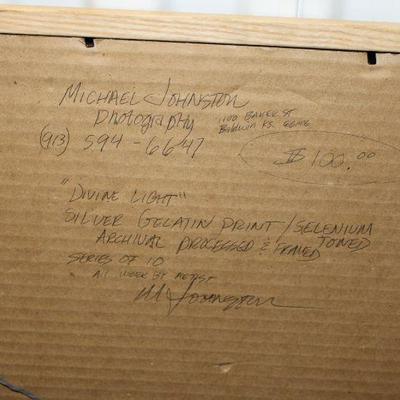 Michael Johnston
Photography
1100 Baker St
Baldwin KS. 66006
(913) 594-6647
$100.00
"Divine Light"
Silver Gelatin Print/Selenium Toned
Archival Processed & Framed
Series of 10
All work by Artist
M Johnston